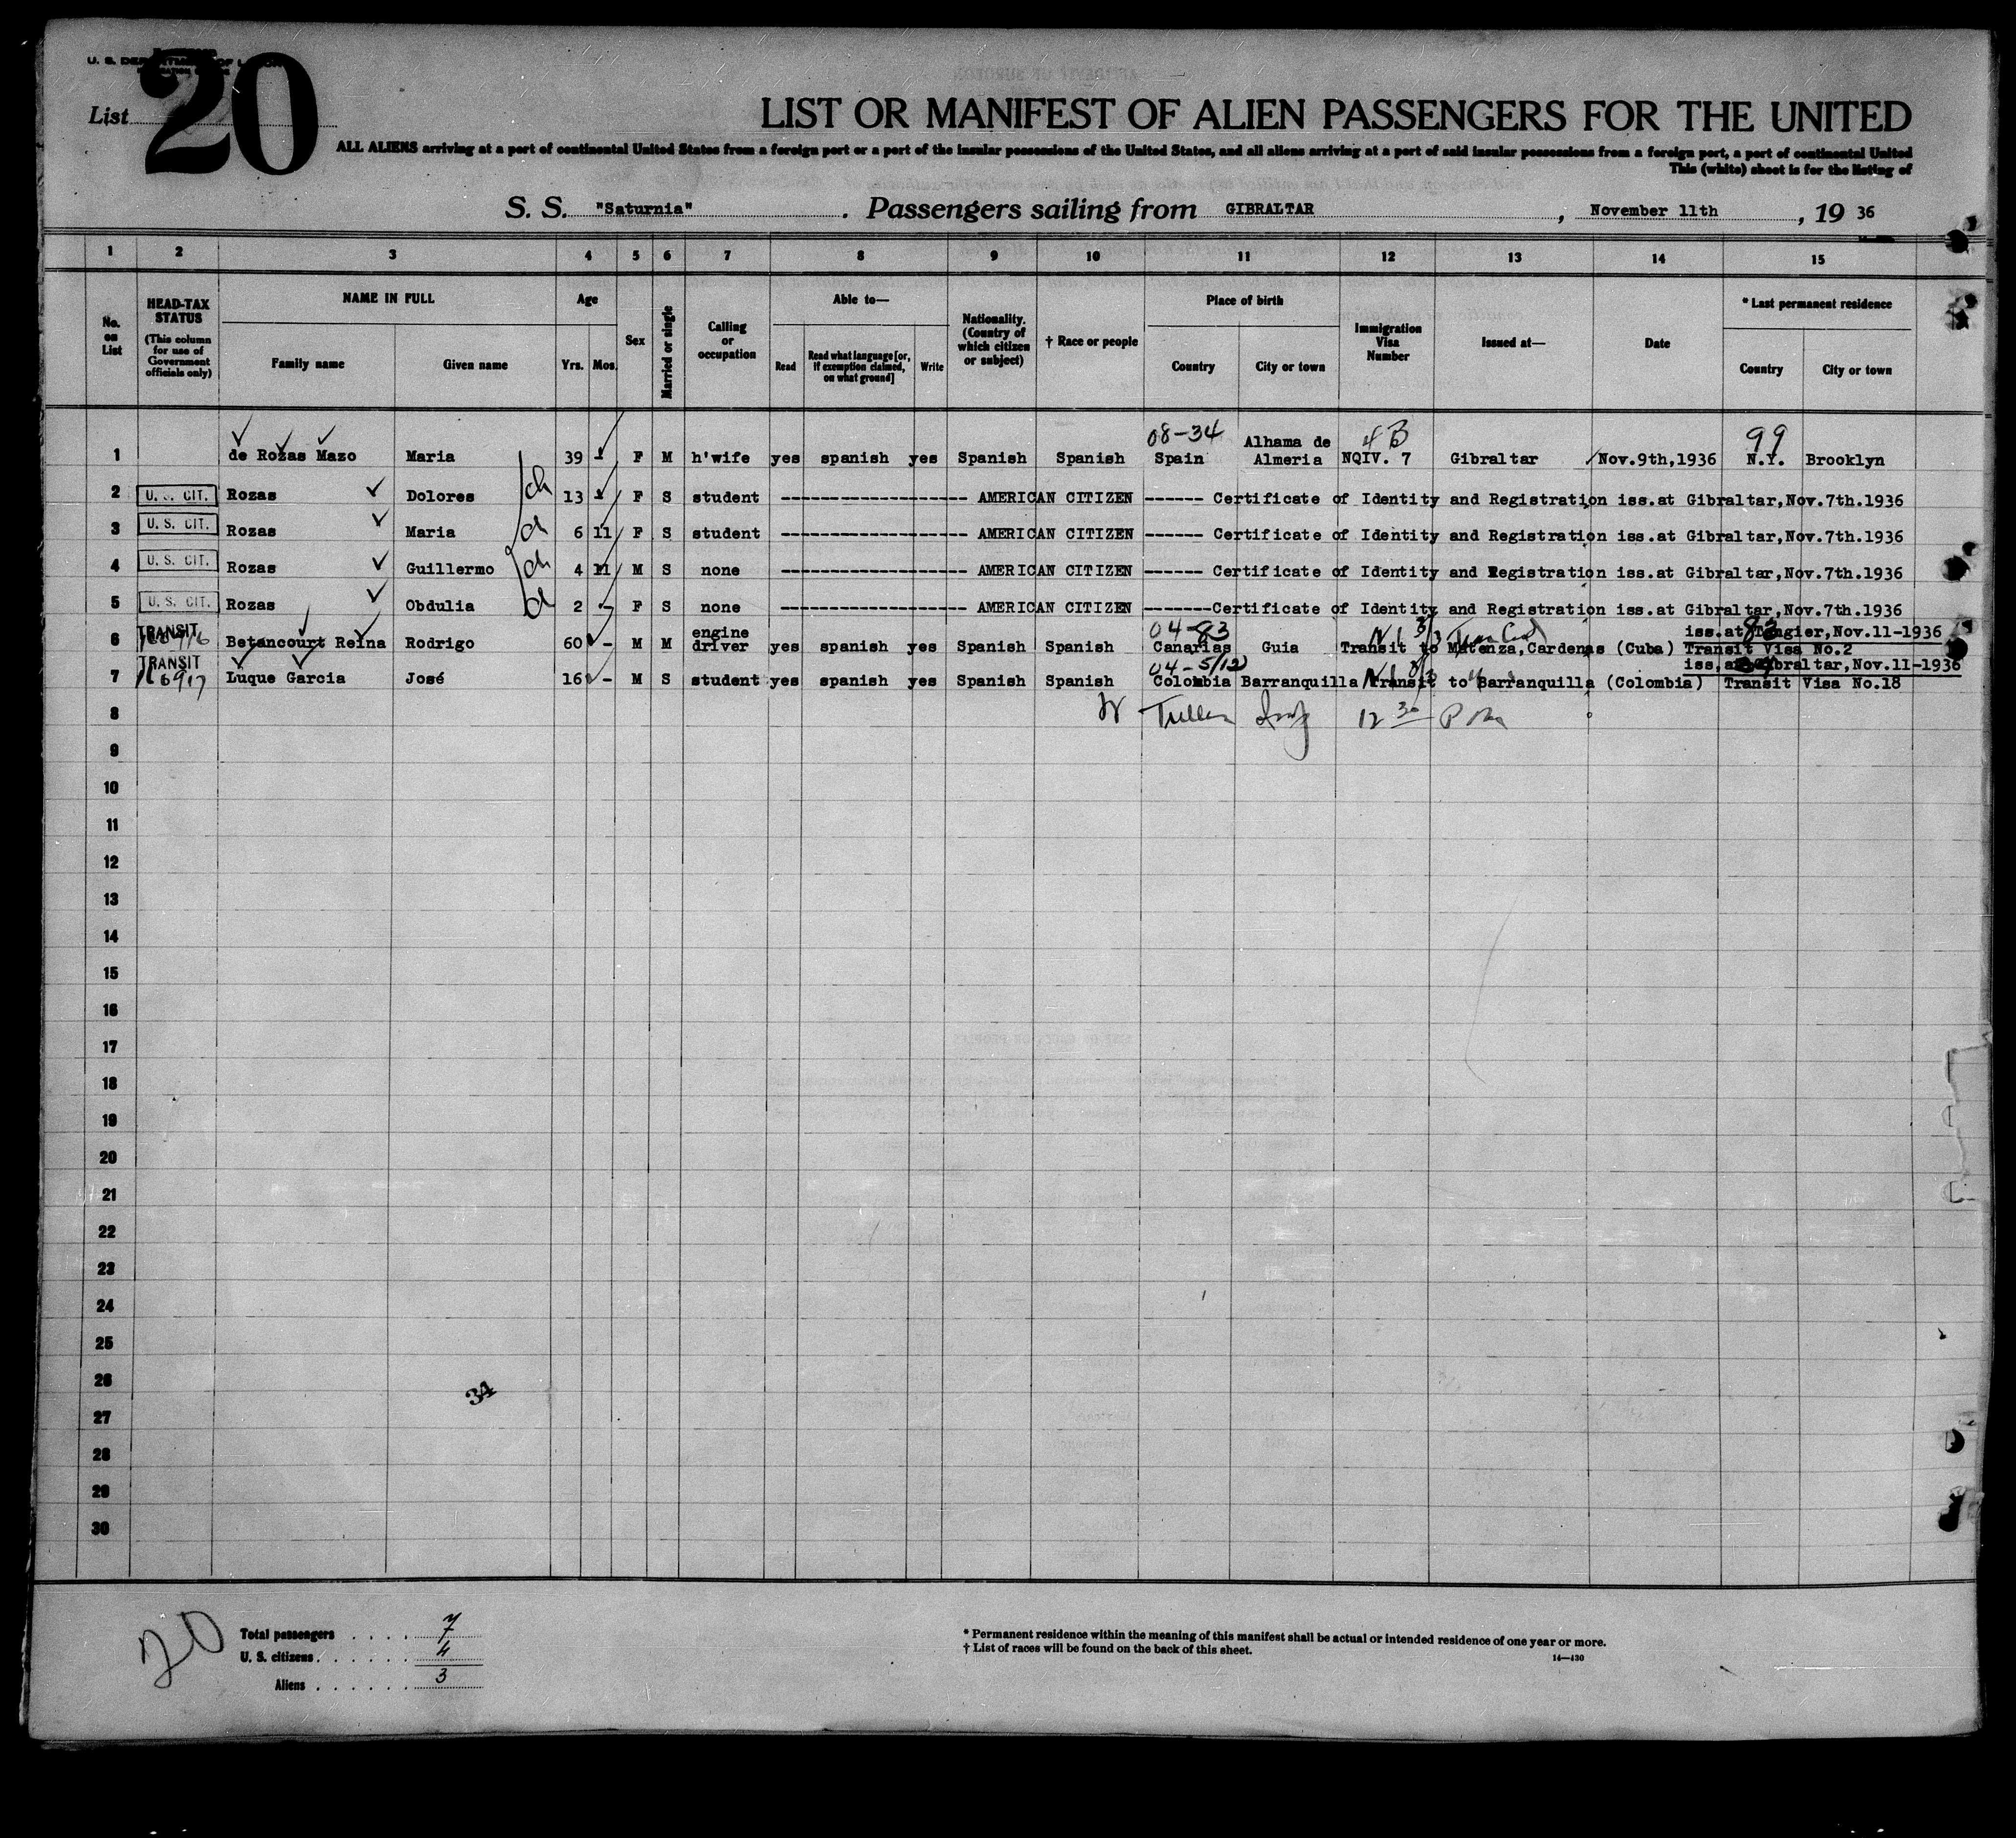 U. S. DEPARTMENT OF LABOR
List 20
LIST OR MANIFEST OF ALIEN PASSENGERS FOR THE UNITED
ALL ALIENS arriving at a port of continental United States from a foreign port or a port of the insular possessions of the United States, and all aliens arriving at a port of said insular possessions from a foreign port, a port of continental United
This (white) sheet is for the listing of
S. S. "Saturnia" . Passengers sailing from GIBRALTAR , November 11th , 19 36
1 2 3 4 5 6 7 8 9 10 11 12 13 14 15
No. on List
HEAD-TAX STATUS (This column for use of Government officials only)
NAME IN FULL
Family name Given name
Age
Yrs. Mos.
Sex
Married or single
Calling or occupation
Able to—
Read Read what language [or, if exemption claimed, on what ground] Write
Nationality. (Country of which citizen or subject)
† Race or people
Place of birth
Country City or town
Immigration Visa Number
Issued at—
Date
* Last permanent residence
Country City or town
08-34 4B 99
1 de Rozas Mazo Maria 39 - F M h'wife yes spanish yes Spanish Spanish Spain Alhama de Almeria NQIV. 7 Gibraltar Nov.9th,1936 N.Y. Brooklyn
2 U. S. CIT. Rozas Dolores 13 - F S student ---- AMERICAN CITIZEN ------ Certificate of Identity and Registration iss.at Gibraltar,Nov.7th.1936
3 U. S. CIT. Rozas Maria 6 11 F S student ---- AMERICAN CITIZEN ------ Certificate of Identity and Registration iss.at Gibraltar,Nov.7th.1936
4 U. S. CIT. Rozas Guillermo 4 11 M S none ---- AMERICAN CITIZEN ------ Certificate of Identity and Registration iss.at Gibraltar,Nov.7th.1936
5 U. S. CIT. Rozas Obdulia 2 - F S none ---- AMERICAN CITIZEN -------Certificate of Identity and Registration iss.at Gibraltar,Nov.7th.1936
TRANSIT 04-83 iss.at Tangier,Nov.11-1936
6 Betancourt Reina Rodrigo 60 - M M engine driver yes spanish yes Spanish Spanish Canarias Guia Transit to Matenza,Cardenas (Cuba) Transit Visa No.2
TRANSIT 04-5/12 iss,at Gibraltar,Nov.11-1936
7 Luque Garcia José 16 - M S student yes spanish yes Spanish Spanish Colombia Barranquilla Transit to Barranquilla (Colombia) Transit Visa No.18
8 12 30
9
10
11
12
13
14
15
16
17
18
19
20
21
22
23
24
25
26
34
27
28
29
30
20
Total passengers . . . . 7
U. S. citizens . . . . . . 4
Aliens . . . . . . 3
* Permanent residence within the meaning of this manifest shall be actual or intended residence of one year or more.
† List of races will be found on the back of this sheet.
14—430